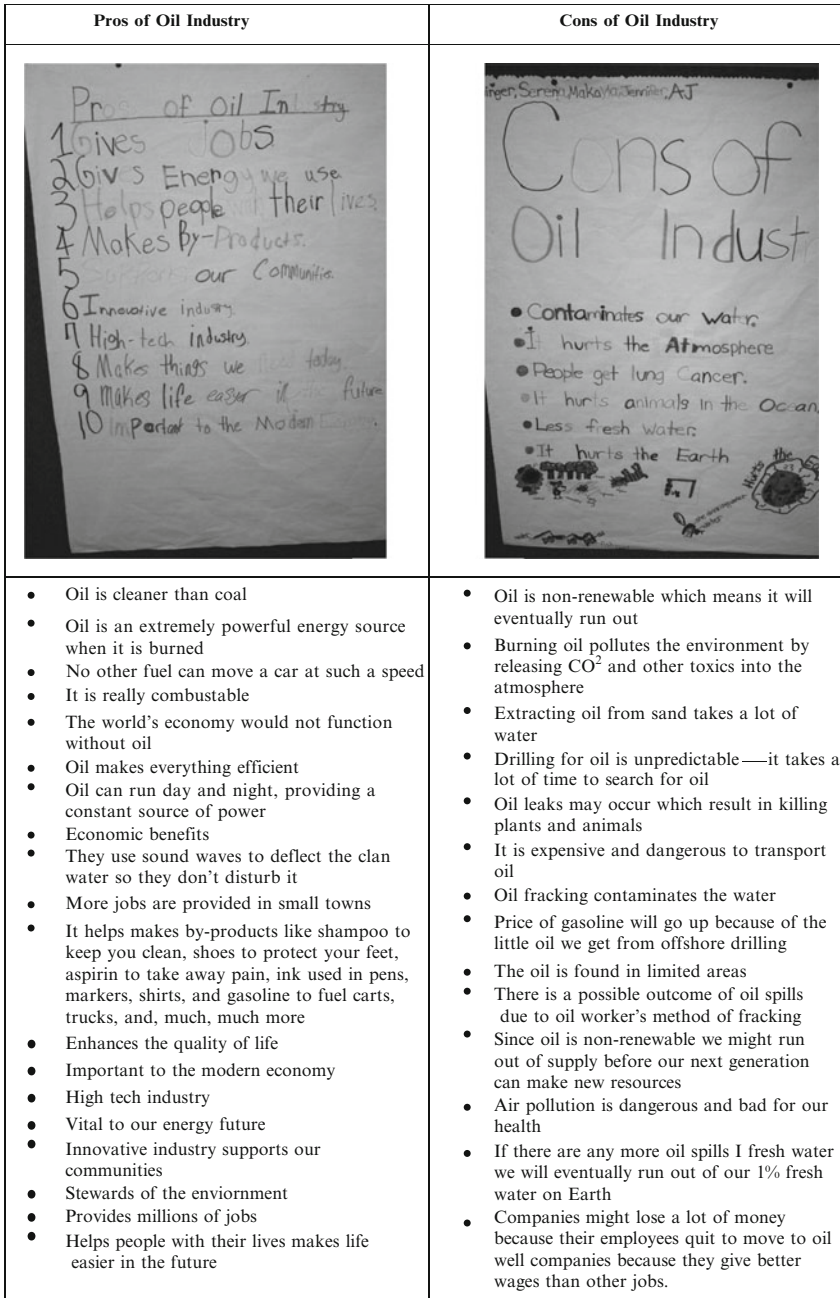 Pros of Oil Industry
Cons of Oil Industry
Pros of Oil Industry
1 Gives jobs
2 Gives Energy we use
3 Helps people with their lives.
4 Makes By-Products.
5 Supports our Communities.
6 Innovative industry.
7 High-tech industry.
8 Makes things we today.
9 Makes life easier in the future
10 Important to the Modern Economy.
Serena, Makayla, Jennifer, AJ
Cons of
Oil Indust
• Contaminates our water.
• It hurts the Atmosphere
• People get lung Cancer.
• It hurts animals in the Ocean.
• Less fresh water.
• It hurts the Earth
Hurts the
water
• Oil is cleaner than coal
• Oil is an extremely powerful energy source
when it is burned
• No other fuel can move a car at such a speed
• It is really combustable
• The world's economy would not function
without oil
• Oil makes everything efficient
• Oil can run day and night, providing a
constant source of power
• Economic benefits
• They use sound waves to deflect the clan
water so they don't disturb it
• More jobs are provided in small towns
• It helps makes by-products like shampoo to
keep you clean, shoes to protect your feet,
aspirin to take away pain, ink used in pens,
markers, shirts, and gasoline to fuel carts,
trucks, and, much, much more
• Enhances the quality of life
• Important to the modern economy
• High tech industry
• Vital to our energy future
• Innovative industry supports our
communities
• Stewards of the enviornment
• Provides millions of jobs
• Helps people with their lives makes life
easier in the future
• Oil is non-renewable which means it will
eventually run out
• Burning oil pollutes the environment by
releasing CO² and other toxics into the
atmosphere
• Extracting oil from sand takes a lot of
water
• Drilling for oil is unpredictable—it takes a
lot of time to search for oil
• Oil leaks may occur which result in killing
plants and animals
• It is expensive and dangerous to transport
oil
• Oil fracking contaminates the water
• Price of gasoline will go up because of the
little oil we get from offshore drilling
• The oil is found in limited areas
• There is a possible outcome of oil spills
due to oil worker's method of fracking
• Since oil is non-renewable we might run
out of supply before our next generation
can make new resources
• Air pollution is dangerous and bad for our
health
• If there are any more oil spills I fresh water
we will eventually run out of our 1% fresh
water on Earth
• Companies might lose a lot of money
because their employees quit to move to oil
well companies because they give better
wages than other jobs.